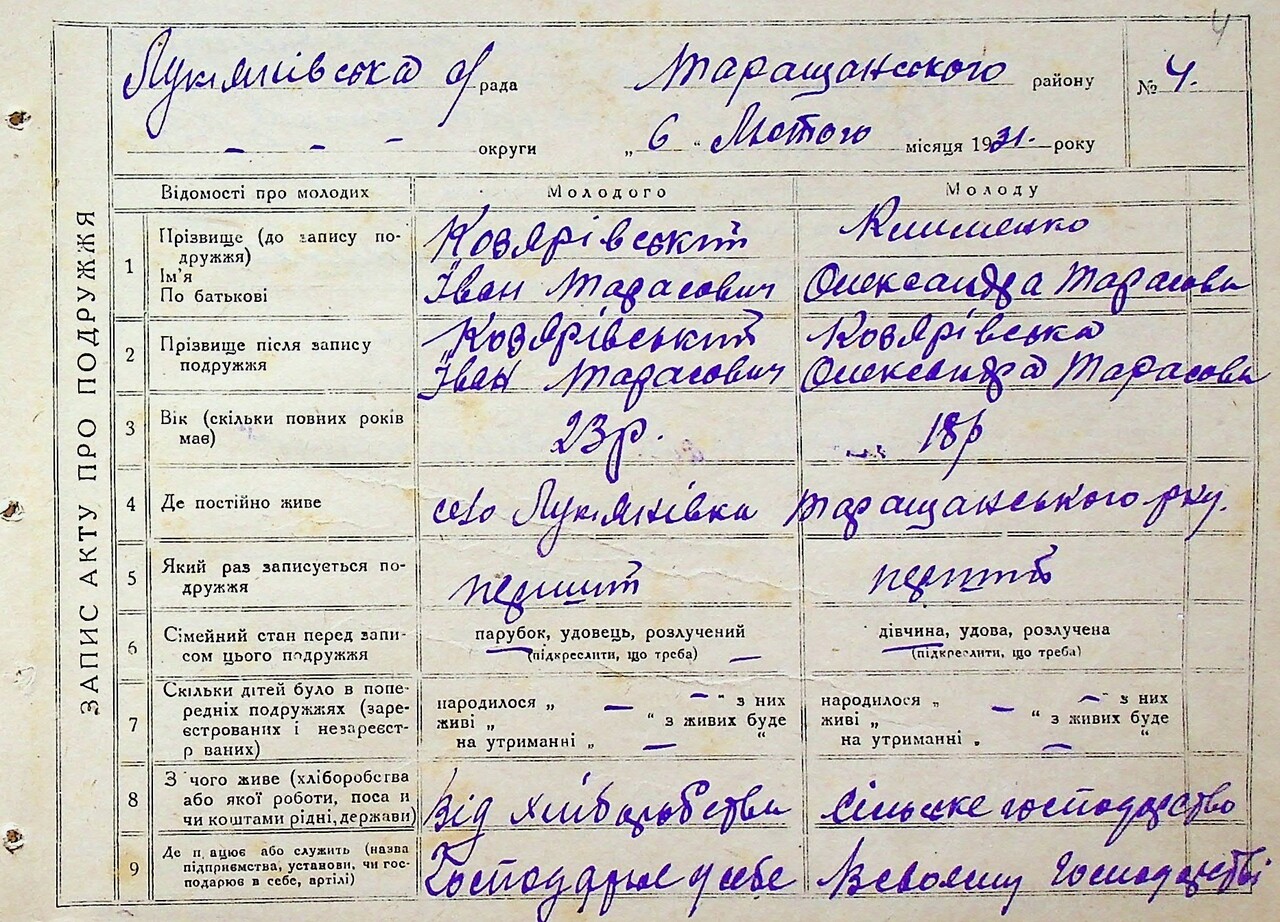 4
Лукянівська с/рада Таращанського району № 4.
- - - округи „ 6 “ Лютого місяця 1931. року
ЗАПИС АКТУ ПРО ПОДРУЖЖЯ
Відомості про молодих Молодого Молоду
1 Прізвище (до запису по-
дружжя)
Ім'я
По батькові
Козярівський
Іван Тарасович
Клименко
Олександра Тарасовн
2 Прізвище після запису
подружжя
Козярівський
Іван Тарасович
Козярівська
Олександра Тарасовн
3 Вік (скільки повних років
має)
23 р. 18 р
4 Де постійно живе село Лукянівка Таращанського р-ну.
5 Який раз записується по-
дружжя
перший перший
6 Сімейний стан перед запи-
сом цього подружжя
парубок, удовець, розлучений
(підкреслити, що треба) —
дівчина, удова, розлучена
(підкреслити, що треба)
7 Скільки дітей було в попе-
редніх подружжях (заре-
єстрованих і незареєст-
р ваних)
народилося „ — “ з них
живі „ “ з живих буде
на утриманні „ — “
народилося „ — “ з них
живі „ “ з живих буде
на утриманні „ — “
8 З чого живе (хліборобства
або якої роботи, поса и
чи коштами рідні, держави)
Від хліборобства
Сільске господарство
9 Де п ацює або служить (назва
підприємства, установи, чи гос-
подарює в себе, артілі)
Господарює у себе
В своєму господарстві